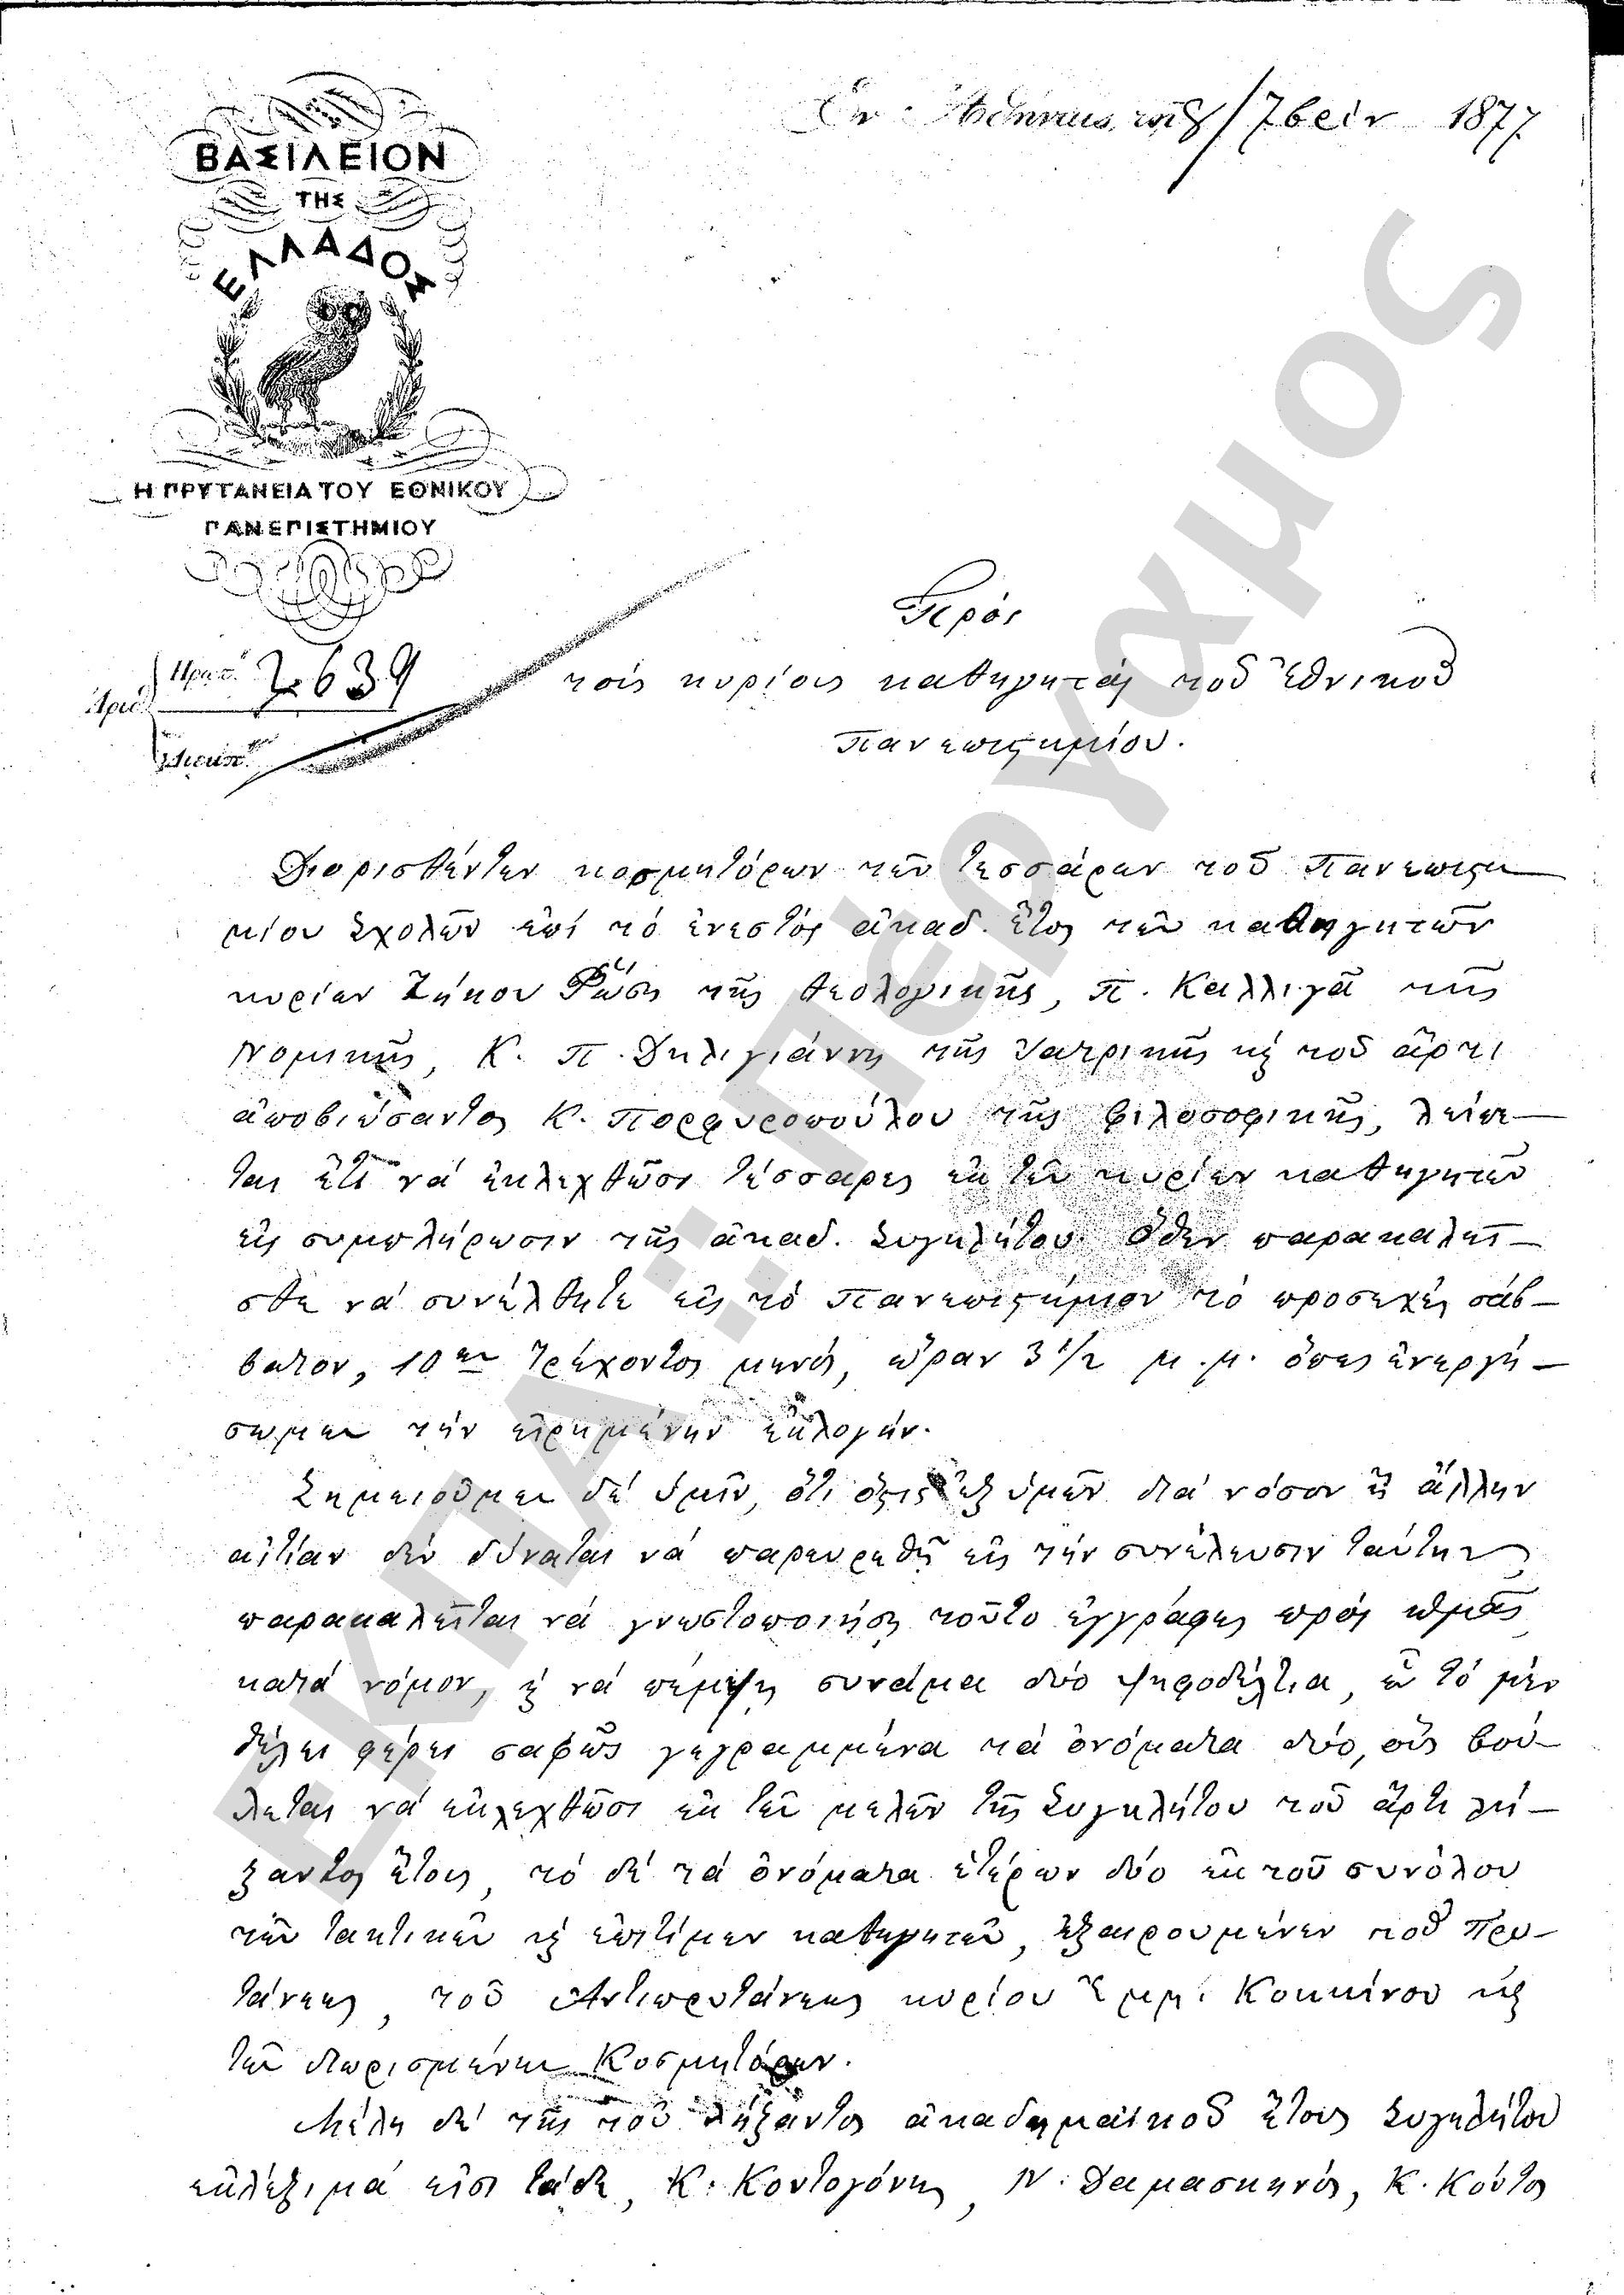 Ἐν Ἀθήναις τῇ 8/7βρίου 1877
ΒΑΣΙΛΕΙΟΝ
ΤΗΣ
ΕΛΛΑΔΟΣ
Η ΠΡΥΤΑΝΕΙΑ ΤΟΥ ΕΘΝΙΚΟΥ
ΠΑΝΕΠΙΣΤΗΜΙΟΥ
Πρός
Ἀριθ. Πρωτ. 2639
τούς κυρίους καθηγητάς τοῦ Ἐθνικοῦ
Διεκπ.
Πανεπιστημίου.
Διορισθέντων κοσμητόρων τῶν τεσσάρων τοῦ Πανεπιστη
μίου Σχολῶν ἐπί τό ἐνεστός ἀκαδ. ἔτος τῶν καθηγητῶν
κυρίων Ζήκου Ῥώση τῆς θεολογικῆς, Π. Καλλιγᾶ τῆς
Νομικῆς, Κ. Π. Δηλιγιάννη τῆς Ἰατρικῆς καί τοῦ ἄρτι
ἀποβιώσαντος Κ. Πορφυροπούλου τῆς φιλοσοφικῆς, λείπε–
ται ἔτι νά ἐκλεχθῶσι τέσσαρες ἐκ τῶν κυρίων καθηγητῶν
εἰς συμπλήρωσιν τῆς ἀκαδ. Συγκλήτου. Ὅθεν παρακαλεῖ–
σθε νά συνέλθητε εἰς τό Πανεπιστήμιον τό προσεχές σάβ–
βατον, 10ην τρέχοντος μηνός, ὥραν 3 1/2 μ.μ. ὅπως ἐνεργή–
σωμεν τήν εἰρημένην ἐκλογήν.
Σημειοῦμεν δέ ὑμῖν, ὅτι ὅστις ἐξ ὑμῶν διά νόσον ἤ ἄλλην
αἰτίαν δέν δύναται νά παρευρεθῇ εἰς τήν συνέλευσιν ταύτην
παρακαλεῖται νά γνωστοποιήσῃ τοῦτο ἐγγράφως πρός ἡμᾶς
κατά νόμον, καί νά πέμψῃ συνάμα δύο ψηφοδέλτια, ὧν τό μέν
θέλει φέρει σαφῶς γεγραμμένα τά ὀνόματα δύο, οὕς βού–
λεται νά ἐκλεχθῶσι ἐκ τῶν μελῶν τῆς Συγκλήτου τοῦ ἄρτι λή–
ξαντος ἔτους, τό δέ τά ὀνόματα ἑτέρων δύο ἐκ τοῦ συνόλου
τῶν τακτικῶν καί ἐπιτίμων καθηγητῶν, ἐξαιρουμένων τοῦ Πρυ–
τάνεως, τοῦ Ἀντιπρυτάνεως κυρίου Ἐμμ. Κοκκίνου καί
τῶν διωρισμένων Κοσμητόρων.
Μέλη δέ τῆς τοῦ λήξαντος ἀκαδημαϊκοῦ ἔτους Συγκλήτου
ἐκλέξιμα εἰσί τάδε, Κ. Κοντογόνης, Ν. Δαμασκηνός, Κ. Κόντος
ΕΚΠΑ: Πέργαμος